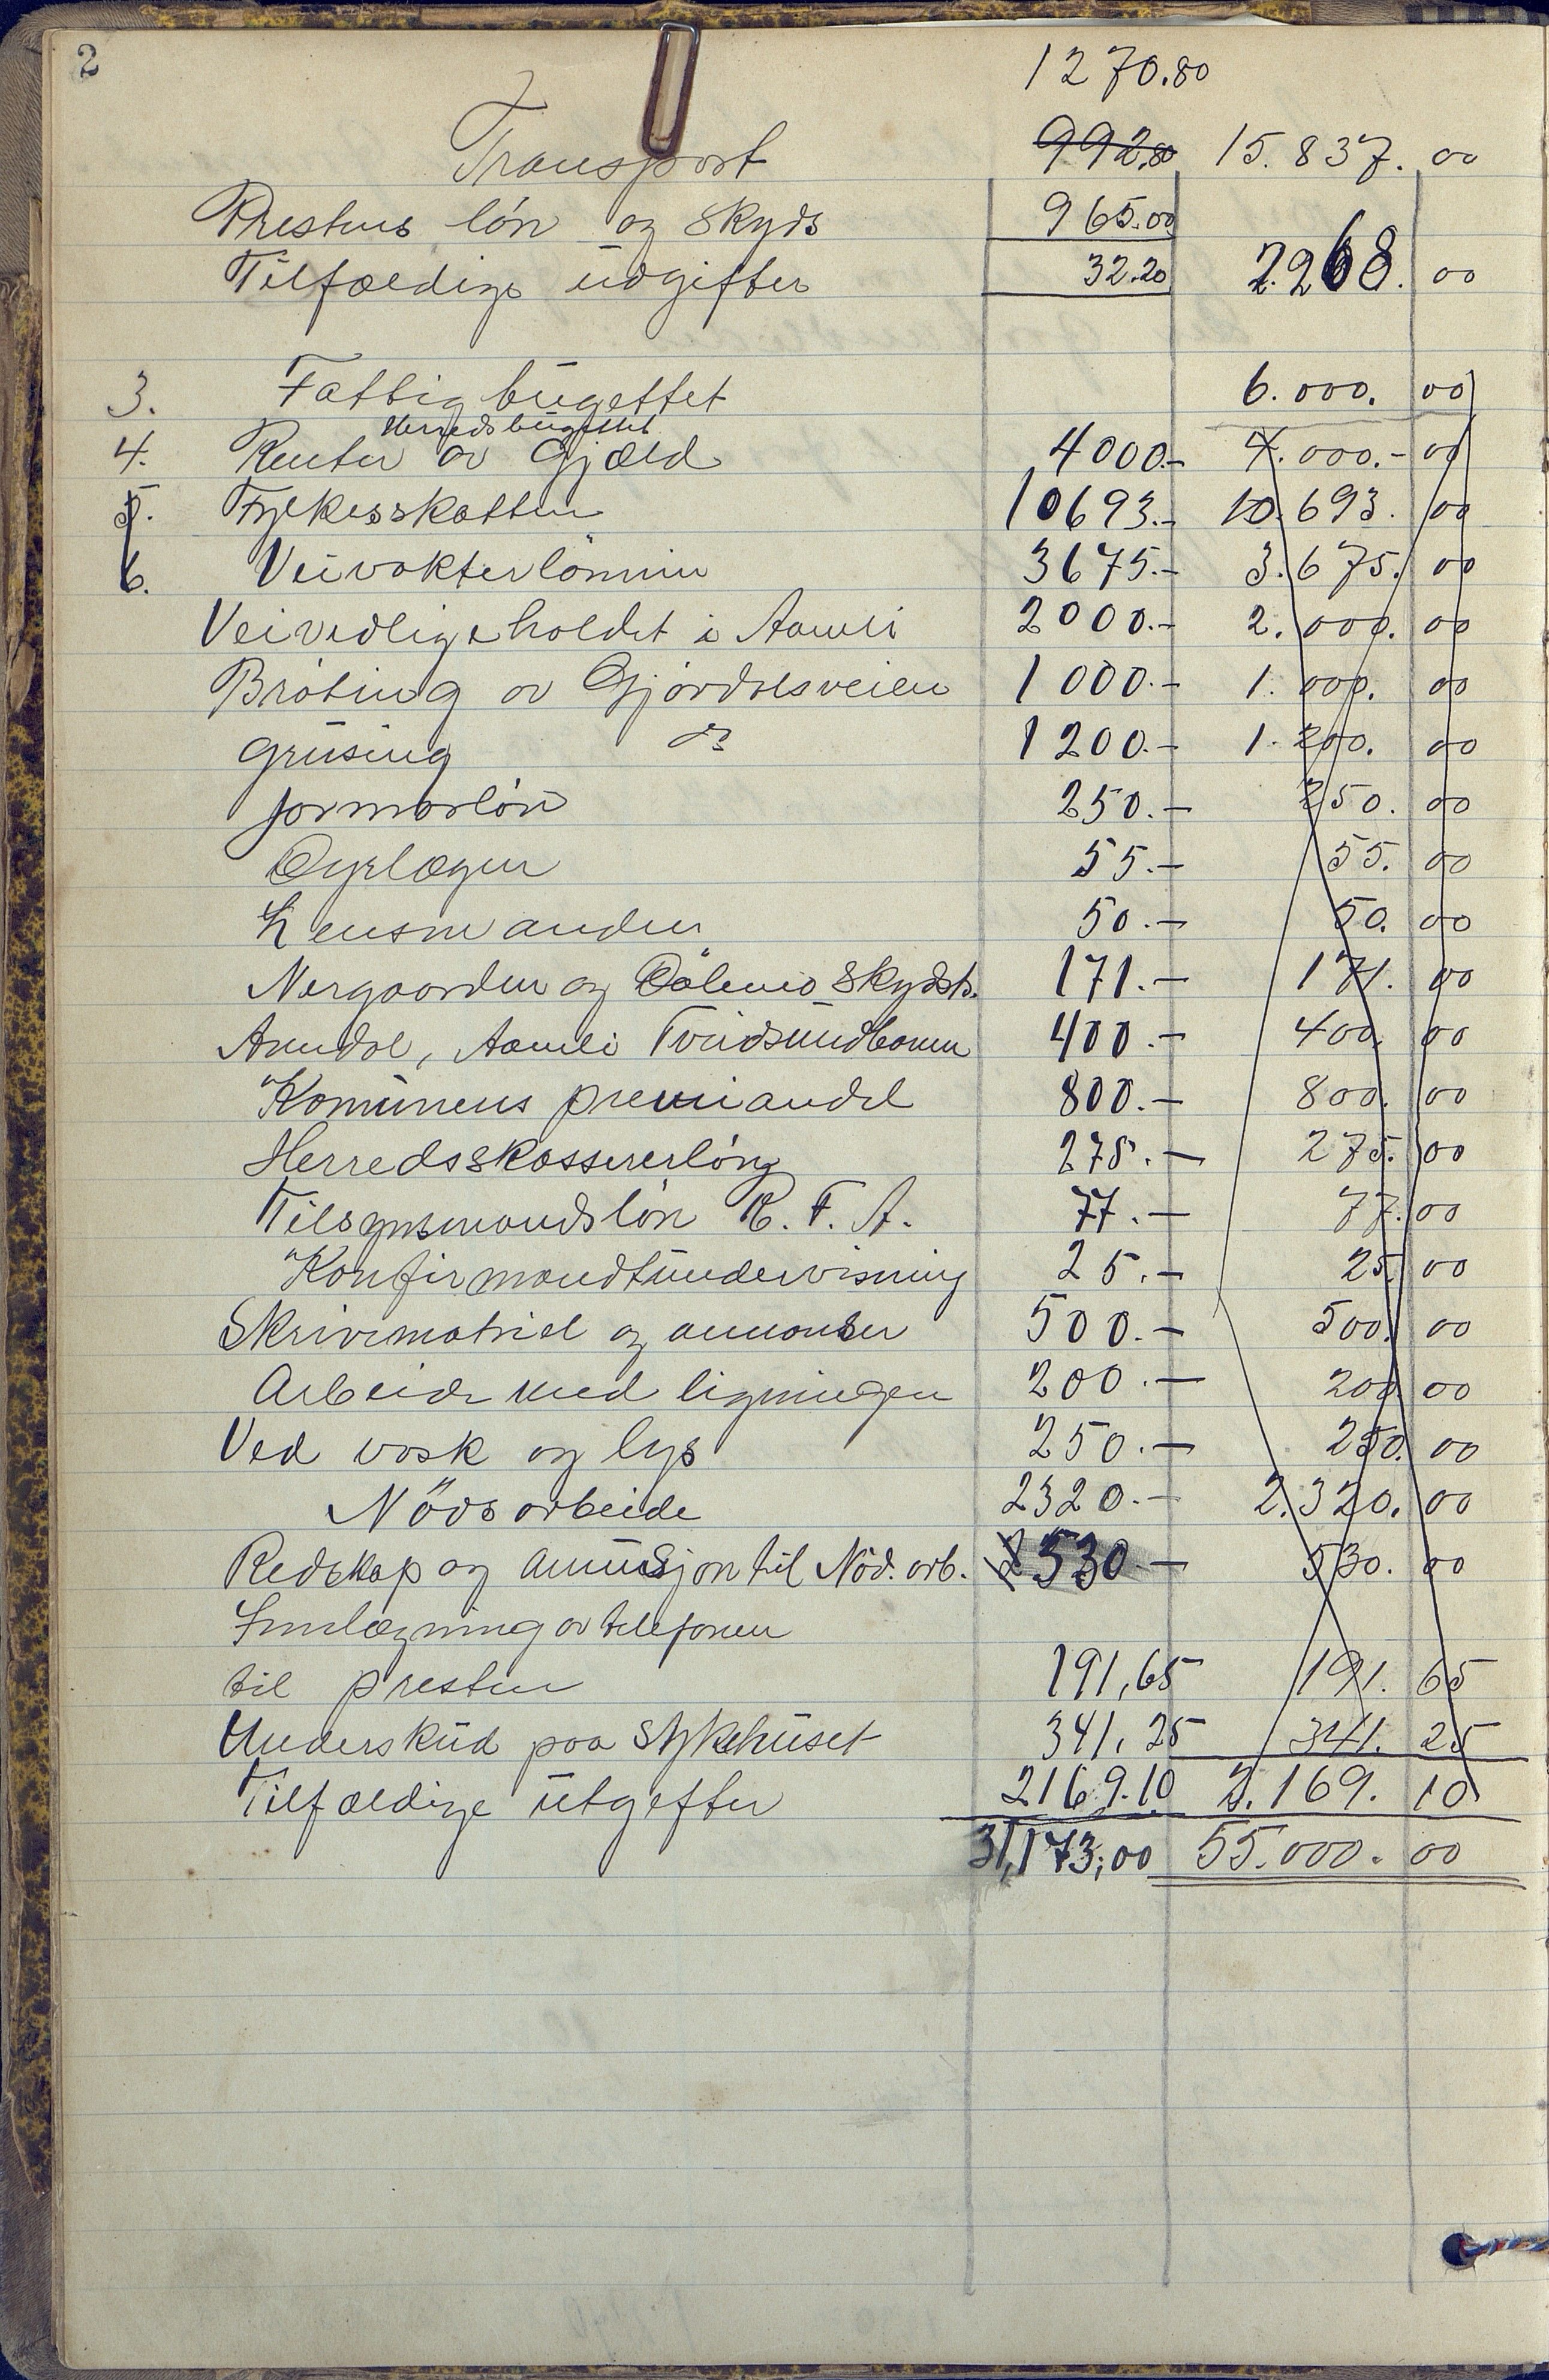 2
1270.80
Transport 992,80 15.837. 00
Prestens lön og skyds 965.00
Tilfældige üdgifter 32.20 2.268. 00
3. Fattigbügettet 6.000. 00
Herredsbügettet
4. Renter av Gjæld 4000.- 4.000.- 00
5. Fylkesskatten 10693.- 10.693. 00
6. Veivokterlönnen 3675.- 3.675. 00
Veivedligeholdet i Aamli 2000.- 2.000. 00
Bröting av Gjövdalsveien 1000.- 1.000. 00
Grüsing do 1200.- 1.200. 00
Jormorlön 250.- 250. 00
Dyrlægen 55.- 55. 00
Lensmanden 50.- 50. 00
Nergaarden og Dölemo Skydsts. 171.- 171. 00
Arendal, Aamli Tveidsündbanen 400.- 400. 00
Komünens premiandel 800.- 800. 00
Herredskassererlön 275.- 275. 00
Tilsynsmandslön R. F. A. 77.- 77. 00
Konfirmandtündervisning 25.- 25 00
Skrivematriel og annonser 500.- 500. 00
Arbeide med ligningen 200.- 200 00
Ved vask og lys 250.- 250. 00
Nödsarbeide 2320.- 2.320. 00
Redskap og amünisjon til Nöd. arb. 530- 530. 00
Innlægning av telefonen
til presten 191,65 191. 65
Undersküd paa Sykehüset 341,25 341. 25
Tilfældige ütgifter 2169.10 2.169. 10
31,173,00 55.000. 00